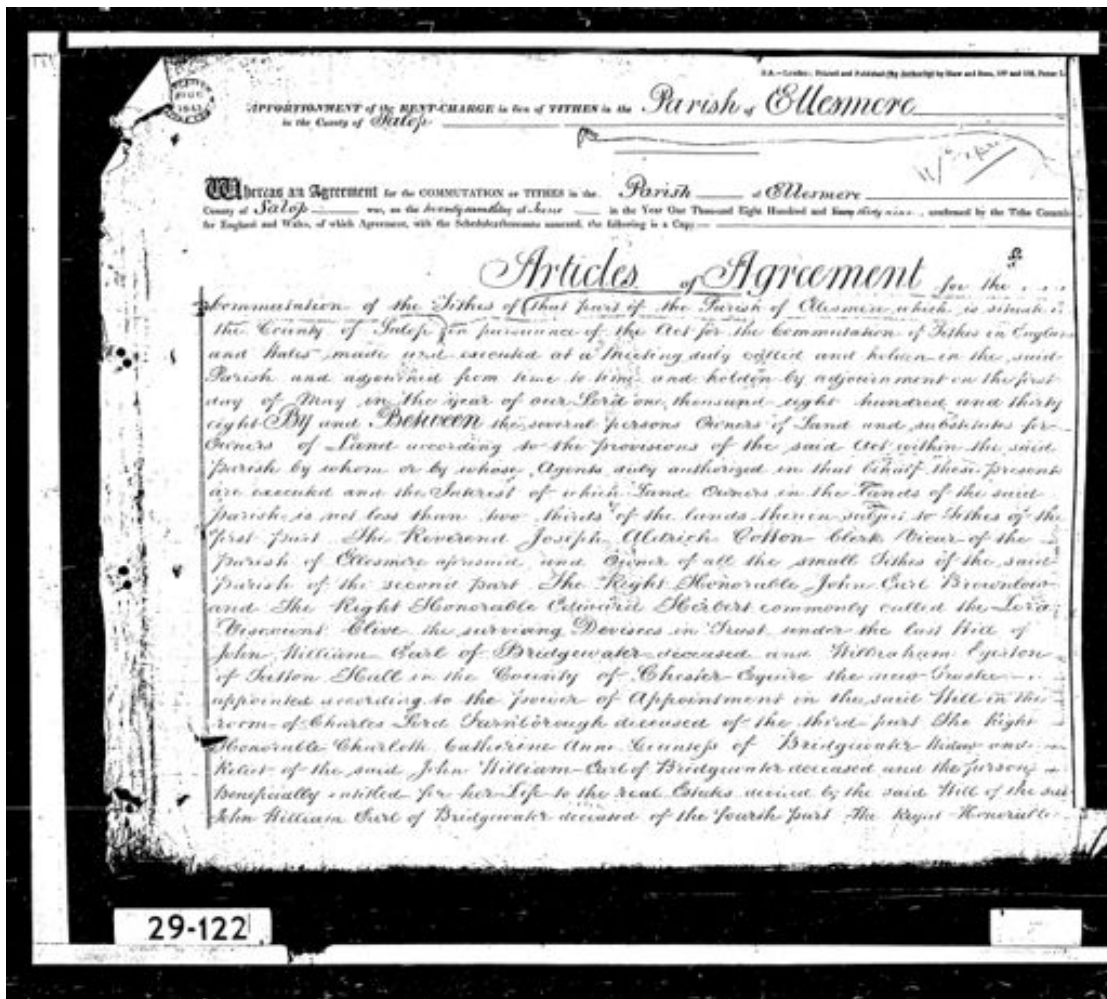 S.A.—London: Printed and Published (by Authority) by Shaw and Sons, 137 and 138, Fetter L
1841
APPORTIONMENT of the RENT-CHARGE in lieu of TITHES in the Parish of Ellesmere
in the County of Salop
Whereas an Agreement for the COMMUTATION OF TITHES in the Parish of Ellesmere
County of Salop was, on the day of June in the Year One Thousand Eight Hundred and thirty nine, confirmed by the Tithe Commis
for England and Wales, of which Agreement, with the Schedule thereunto annexed, the following is a Copy
Articles of Agreement for the
Commutation of the Tithes of (that part of the Parish of Ellesmere which is situate in
the County of Salop) in pursuance of the Act for the Commutation of Tithes in England
and Wales made and executed at a Meeting duly called and holden in the said
Parish and adjourned from time to time and holden by adjournment on the first
day of May in the year of our Lord one thousand eight hundred and thirty
eight By and Between the several persons Owners of Land and substitutes for
Owners of Land according to the provisions of the said Act within the said
parish by whom or by whose Agents duly authorized in that behalf these presents
are executed and the Interest of which Land Owners in the Lands of the said
parish is not less than two thirds of the lands therein subject to Tithes of the
first part The Reverend Joseph Aldrich Cotton Clerk Vicar of the
parish of Ellesmere aforesaid and Owner of all the small Tithes of the said
parish of the second part The Right Honorable John Earl Brownlow
and The Right Honorable Edward Herbert commonly called the Lord
Viscount Clive the surviving Devisees in Trust under the last Will of
John William Earl of Bridgewater deceased and Wilbraham Egerton
of Tatton Hall in the County of Chester Esquire the new Trustee
appointed according to the power of Appointment in the said Will in the
room of Charles Lord Farnborough deceased of the third part The Right
Honorable Charlotte Catherine Anne Countess of Bridgewater Widow and
Relict of the said John William Earl of Bridgewater deceased and the person
Beneficially entitled for her Life to the real Estates devised by the said Will of the said
John William Earl of Bridgewater deceased of the fourth part The Right Honorable
29-122